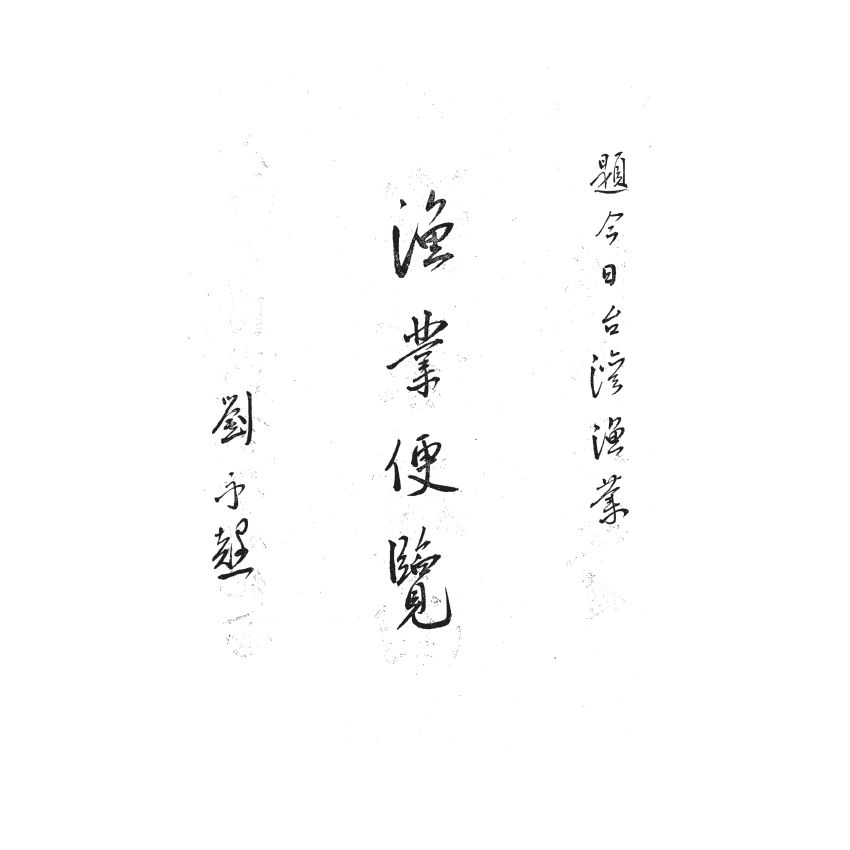 題今日台灣漁業
漁業便覽
劉永